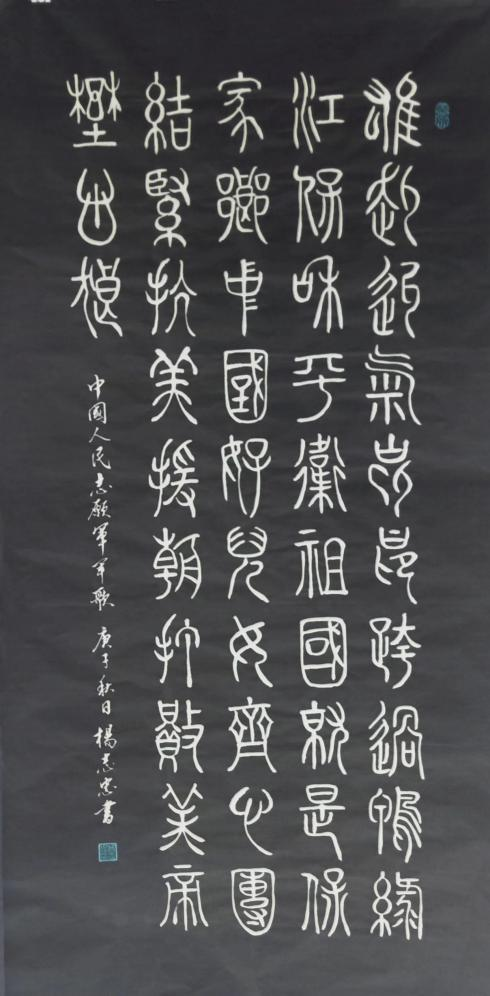 雄赳赳氣昂昂跨過鴨綠
江保和平衛祖國就是保
家鄉中國好兒女齊心團
結緊抗美援朝打敗美帝
壄心狼
中國人民志願軍軍歌 庚子秋日 楊志忠書